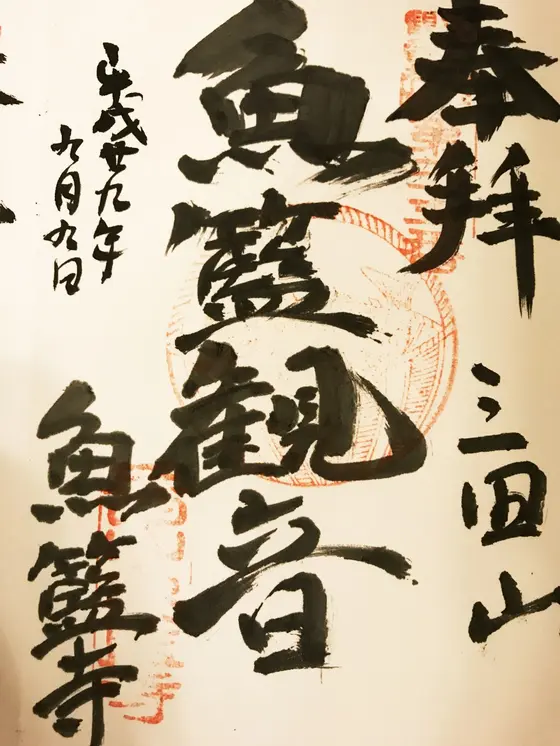 奉拝
三田山
魚籃観音
平成廿九年
九月九日
魚籃寺